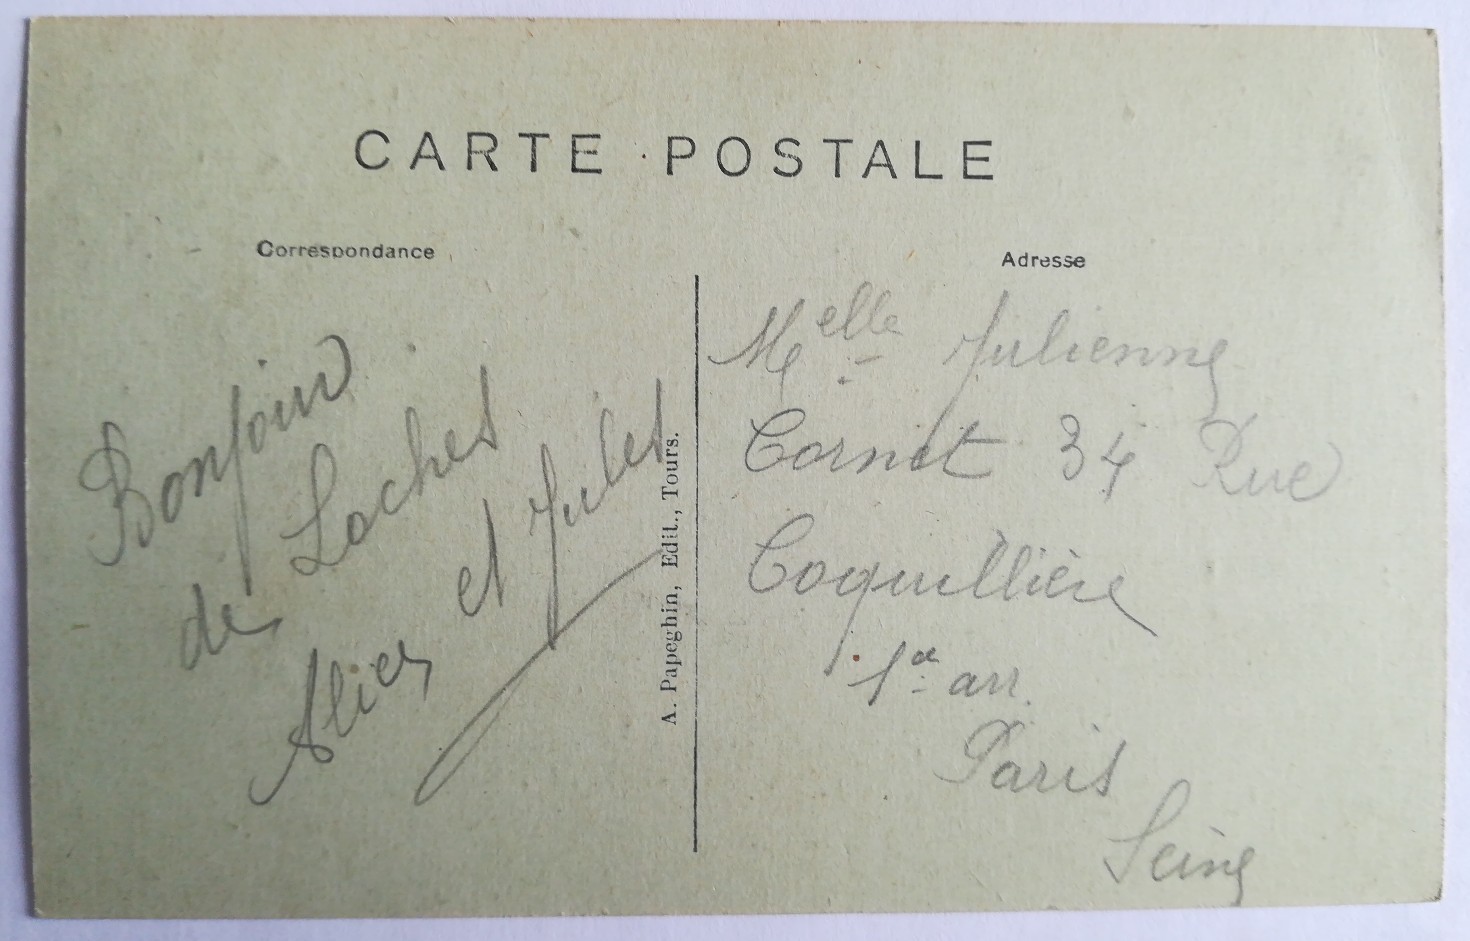 CARTE POSTALE
Correspondance
Bonjour
de Loches
Alice et Jules
A. Papeghin, Edit., Tours.
Adresse
Melle Julienne
Cornet 34 Rue
Coquillière
1er arr.
Paris
Seine